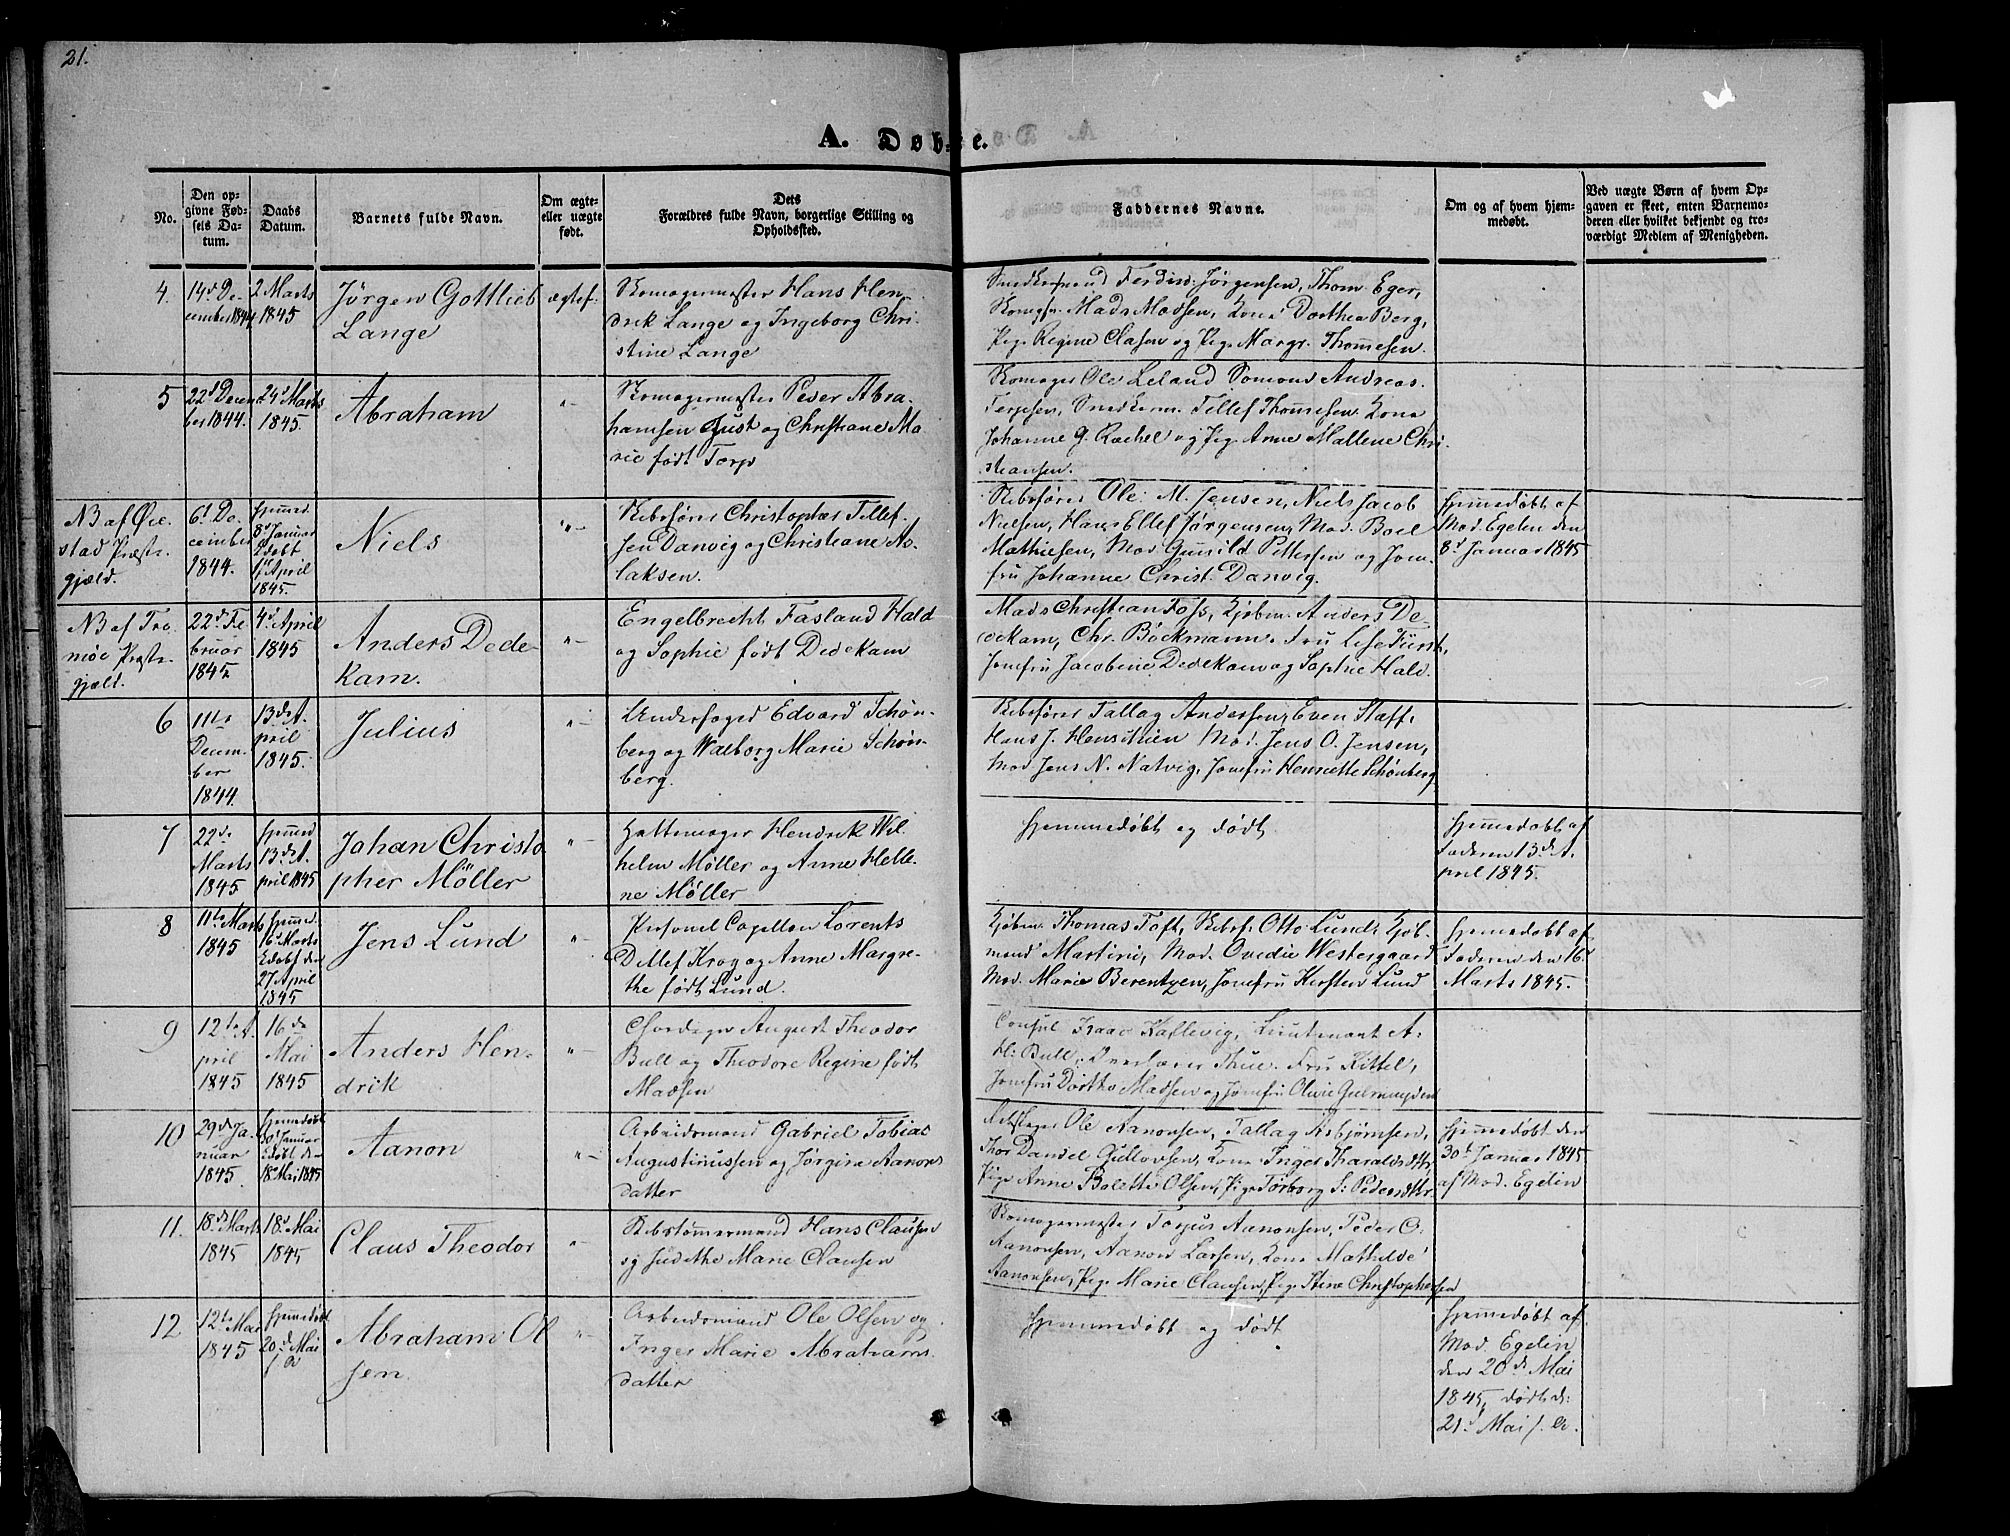 21.
A. Døbte.
No.
Den op-
givne Fød-
sels Da-
tum.
Daabs
Datum.
Barnets fulde Navn.
Om ægte-
eller uægte
født.
Dets
Forældres fulde Navn, borgerlige Stilling og
Opholdssted.
Faddernes Navne.
Om og af hvem hjem-
medøbt.
Ved uægte Børn af hvem Op-
gaven er skeet, enten Barnemo-
deren eller hvilket bekjendt og tro-
værdigt Medlem af Menigheden.
4.
14d De-
cember 1844
2 Marts
1845
Jörgen Gottlieb
Lange
ægtef.
Skomagermester Hans Hen-
drik Lange og Ingeborg Chri-
stine Lange
Snedkersvend Ferdin: Jörgensen, Thom. Eger,
Mads Madsen, Kone Dorthea Berg,
Pig. Regine Clasen og Pig. Margr. Thomesen.
5
22d Decem
ber 1844.
24d Marts
1845.
Abraham
"-
Skomagermester Peder Abra-
hamsen Just og Christiane Ma-
rie født Torp
Skomager Ole Leland Somand Andreas
Terjesen, Snedkerm. Tellef Thomesen. Kone
Johanne G. Rachel og Pig. Anne Mallene Chri-
stiansen.
NB af Øie-
stad Præste-
gjæld.
6d De-
cember
1844.
hjemmed.
8d Januar
døbt
1d April
1845.
Niels
"-
Skibsfører Christopher Tellef-
sen Danvig og Christiane As-
laksen.
Skibsfører Ole M. Jensen, Niels Jacob
Nielsen, Hans Ellef Jørgensen, Mad. Boel
Mathiesen, Mad. Gunild Pettersen og Jom-
fru Johanne Christ. Danvig.
hjemmedøbt af
Mad. Egelin den
8d Januar 1845
NB af Tro-
møe Præste-
gjæld.
22d Fe
bruar
1845
4d April
1845
Anders Dede-
kam.
"-
Engelbrecht Fasland Hald
og Sophie født Dedekam
Mads Christian Foss, Kjøbm. Anders De-
dekam, Chr. Böckmann, Fru Lise Fürst,
Jomfru Jacobine Dedekam og Sophie Hald.
6
11te
Decem-
ber
1844.
13de A-
pril
1845.
Julius
"-
Underfoged Edvard Schøn-
berg og Walborg Marie Schøn-
berg.
Skibsfører Tallag Andersen, Even Staff,
Hans J. Mad. Jens O. Jensen,
Mad. Jens N. Natvig, Jomfru Henriette Schønberg
7
22de
Marts
1845
hjemmed
13de A-
pril 1845
Johan Christo
pher Möller
"-
Hattemager Hendrik Wil-
helm Møller og Anne Helle-
ne Møller
hjemmedøbt og død.
hjemmedøbt af
Faderen 13de A-
pril 1845.
8
11te Marts
1845
hjemmed.
16d Marts
døbt den
27 April
1845
Jens Lund
"-
Personel Capellan Lorents
Ditlef Krog og Anne Margre-
the født Lund.
Kjøbm. Thomas Toft, Skibsf. Otto Lund, Kjøb-
mand Martini, Mad. Ovedie Westergaard
Mad. Marie Berentzen, Jomfru Kirsten Lund
hjemmedøbt af
Faderen den 16d
Marts 1845.
9
12te A-
pril
1845
16de
Mai
1845
Anders Hen-
drik
"-
August Theodor
Bull og Theodore Regine født
Madsen
Consul Isaac Kallevig, Lieutenant A.
H. Bull, Overlærer Thue. Fru Kittel,
Jomfru Dorthe Madsen og Jomfru Olivie
10
29de Ja-
nuar
1845.
hjemmedøbt
30d Januar
døbt den
18de Mai 1845
Aanon
"-
Arbeidsmand Gabriel Tobias
Augustinussen og Jørgine Aanons
datter
Ole Aanonsen, Tallag Asbjørnsen,
Thor Daniel Gullovsen, Kone Inger Tharaldsdtr.
Pige Anne Bolette Olsen, Pige Torborg S. Pedersdtr.
hjemmedøbt den
30d Januar 1845
af Mad. Egelin
11.
18de Marts
1845
18d Mai
1845
Claus Theodor
"-
Skibstømmermand Hans Clausen
og Judithe Marie Clausen
Skomagermester Torjus Aanonsen, Peder O.
Aanonsen, Aanon Larsen, Kone Mathilde
Aanonsen, Pig. Marie Clausen, Pig. Stine Christophersen
12
12te Mai
1845
hjemmedøbt
20d Mai
Abraham Ol
sen.
"-
Arbeidsmand Ole Olsen og
Inger Marie Abrahams
datter
hjemmedøbt og død
hjemmedøbt af
Mad. Egelin
den 20de Mai
1845, død d:
21d Mai